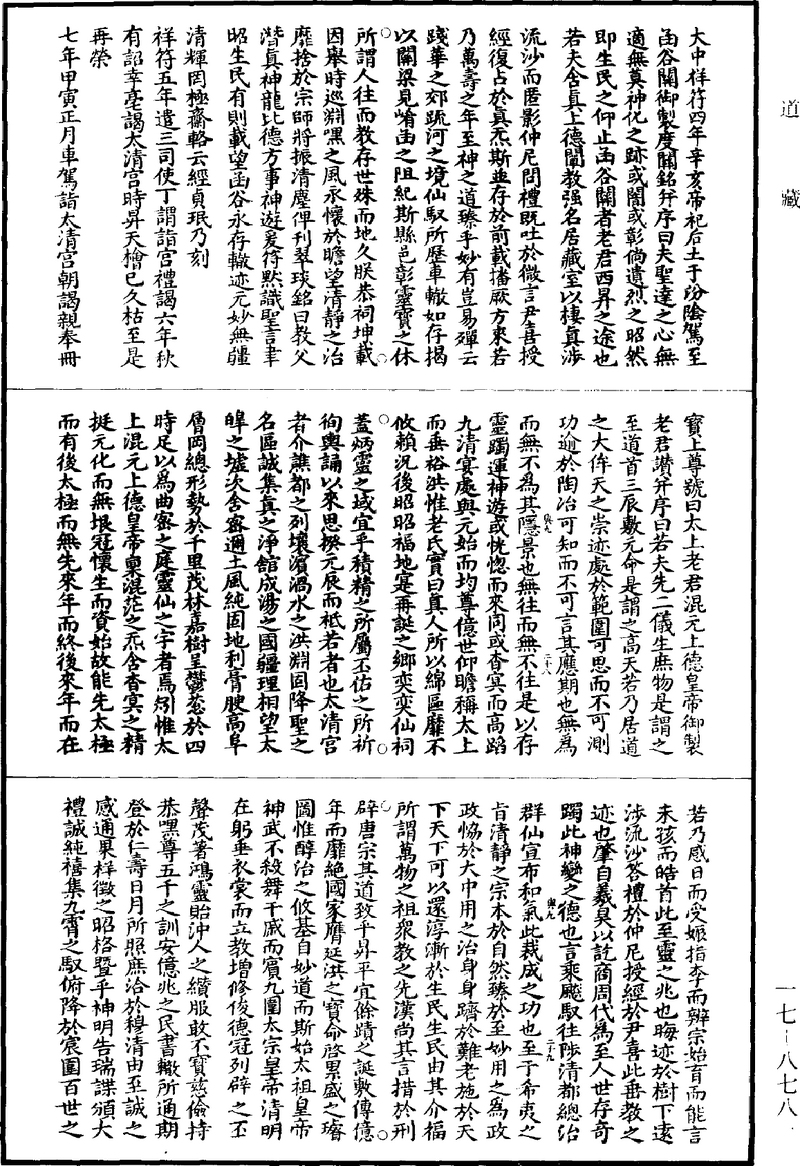 道藏
大中祥符四年辛亥帝祀后土于汾陰駕至
函谷關御製度關銘幷序曰夫聖達之心無
適無莫神化之跡或闇或彰倘遺烈之昭然
卽生民之仰止函谷關者老君西昇之途也
若夫含眞上德闡教强名居藏室以棲眞涉
流沙而匿影仲尼問禮旣吐於微言尹喜授
經復占於眞炁斯並存於前載播厥方來若
乃萬壽之年至神之道臻乎妙有豈易殫云
踐華之郊疏河之境仙馭所歷車轍如存揭
以關梁見崤函之阻紀斯縣邑彰靈寶之休
所謂人往而教存世姝而地久朕恭祠坤載
因舉時巡淵嘿之風永懷於瞻望清靜之治
靡捨於宗師將振清塵俾刊翠琰銘曰教父
濳眞神龍比德方事神遊爰符默識聖言聿
昭生民有則載望函谷永存轍迹元妙無疆
清輝罔極齋輅云經貞珉乃刻
祥符五年遣三司使丁謂詣宮禮謁六年秋
有詔幸亳謁太清宮時昇天檜已久枯至是
再榮
七年甲寅正月車駕詣太清宮朝謁親奉冊
寶上尊號曰太上老君混元上德皇帝御製
老君讚幷序曰若夫先二儀生庶物是謂之
至道首三辰敷元命是謂之高天若乃居道
之大侔天之崇迹處於範圍可思而不可測
功逾於陶冶可知而不可言其應期也無爲
而無不爲其隱景也無往而無不往是以存
靈躅運神遊或恍惚而來同或杳冥而高蹈
九清宴處與元始而均尊億世仰瞻稱太上
而垂裕洪惟老氏實曰眞人所以綿區靡不
攸賴況後昭昭福地寔再誕之鄉奕奕仙祠
蓋炳靈之域宜乎積精之所屬丕佑之所祈
徇輿誦以來思揆元辰而祗若者也太清宮
者介譙都之列壤濱渦水之洪淵固降聖之
名區誠集眞之淨館成湯之國疆理相望太
皥之墟次舍密邇土風純固地利膏腴高阜
層岡總形勢於千里茂林嘉樹呈鬱葱於四
時足以爲曲密之庭靈仙之宇者焉矧惟太
上混元上德皇帝稟混茫之炁含杳冥之精
挺元化而無垠冠懷生而資始故能先太極
而有後太極而無先來年而終後來年而在
若乃感日而受姬指李而辨宗始育而能言
未孩而皓首此至靈之兆也晦迹於樹下遠
涉流沙答禮於仲尼授經於尹喜此垂教之
迹也肇自羲皇以訖商周代爲至人世存奇
躅此神變之德也言乘飈馭往陟清都總治
群仙宣布和氣此裁成之功也至于希夷之
旨清靜之宗本於自然臻於至妙用之爲政
政恊於大中用之治身身躋於難老施於天
下天下可以還淳漸於生民生民由其介福
所謂萬物之祖衆教之先漢尚其言措於刑
辟唐宗其道致乎昇平宜餘蹟之誕敷傳億
年而靡絕國家膺延洪之寶命啓累盛之璿
圖惟醇治之攸基自妙道而斯始太祖皇帝
神武不殺舞干戚而賓九圍太宗皇帝清明
在躬垂衣裳而立教增修俊德冠列辟之丕
聲茂著鴻靈貽沖人之纘服敢不寶慈儉持
恭嘿尊五千之訓安億兆之民書轍所通期
登於仁壽日月所照庶洽於穆清由至誠之
感通果祥徵之昭格暨乎神明告瑞諜頒大
禮誠純禧集九霄之馭俯降於宸圍百世之
一七-八七八